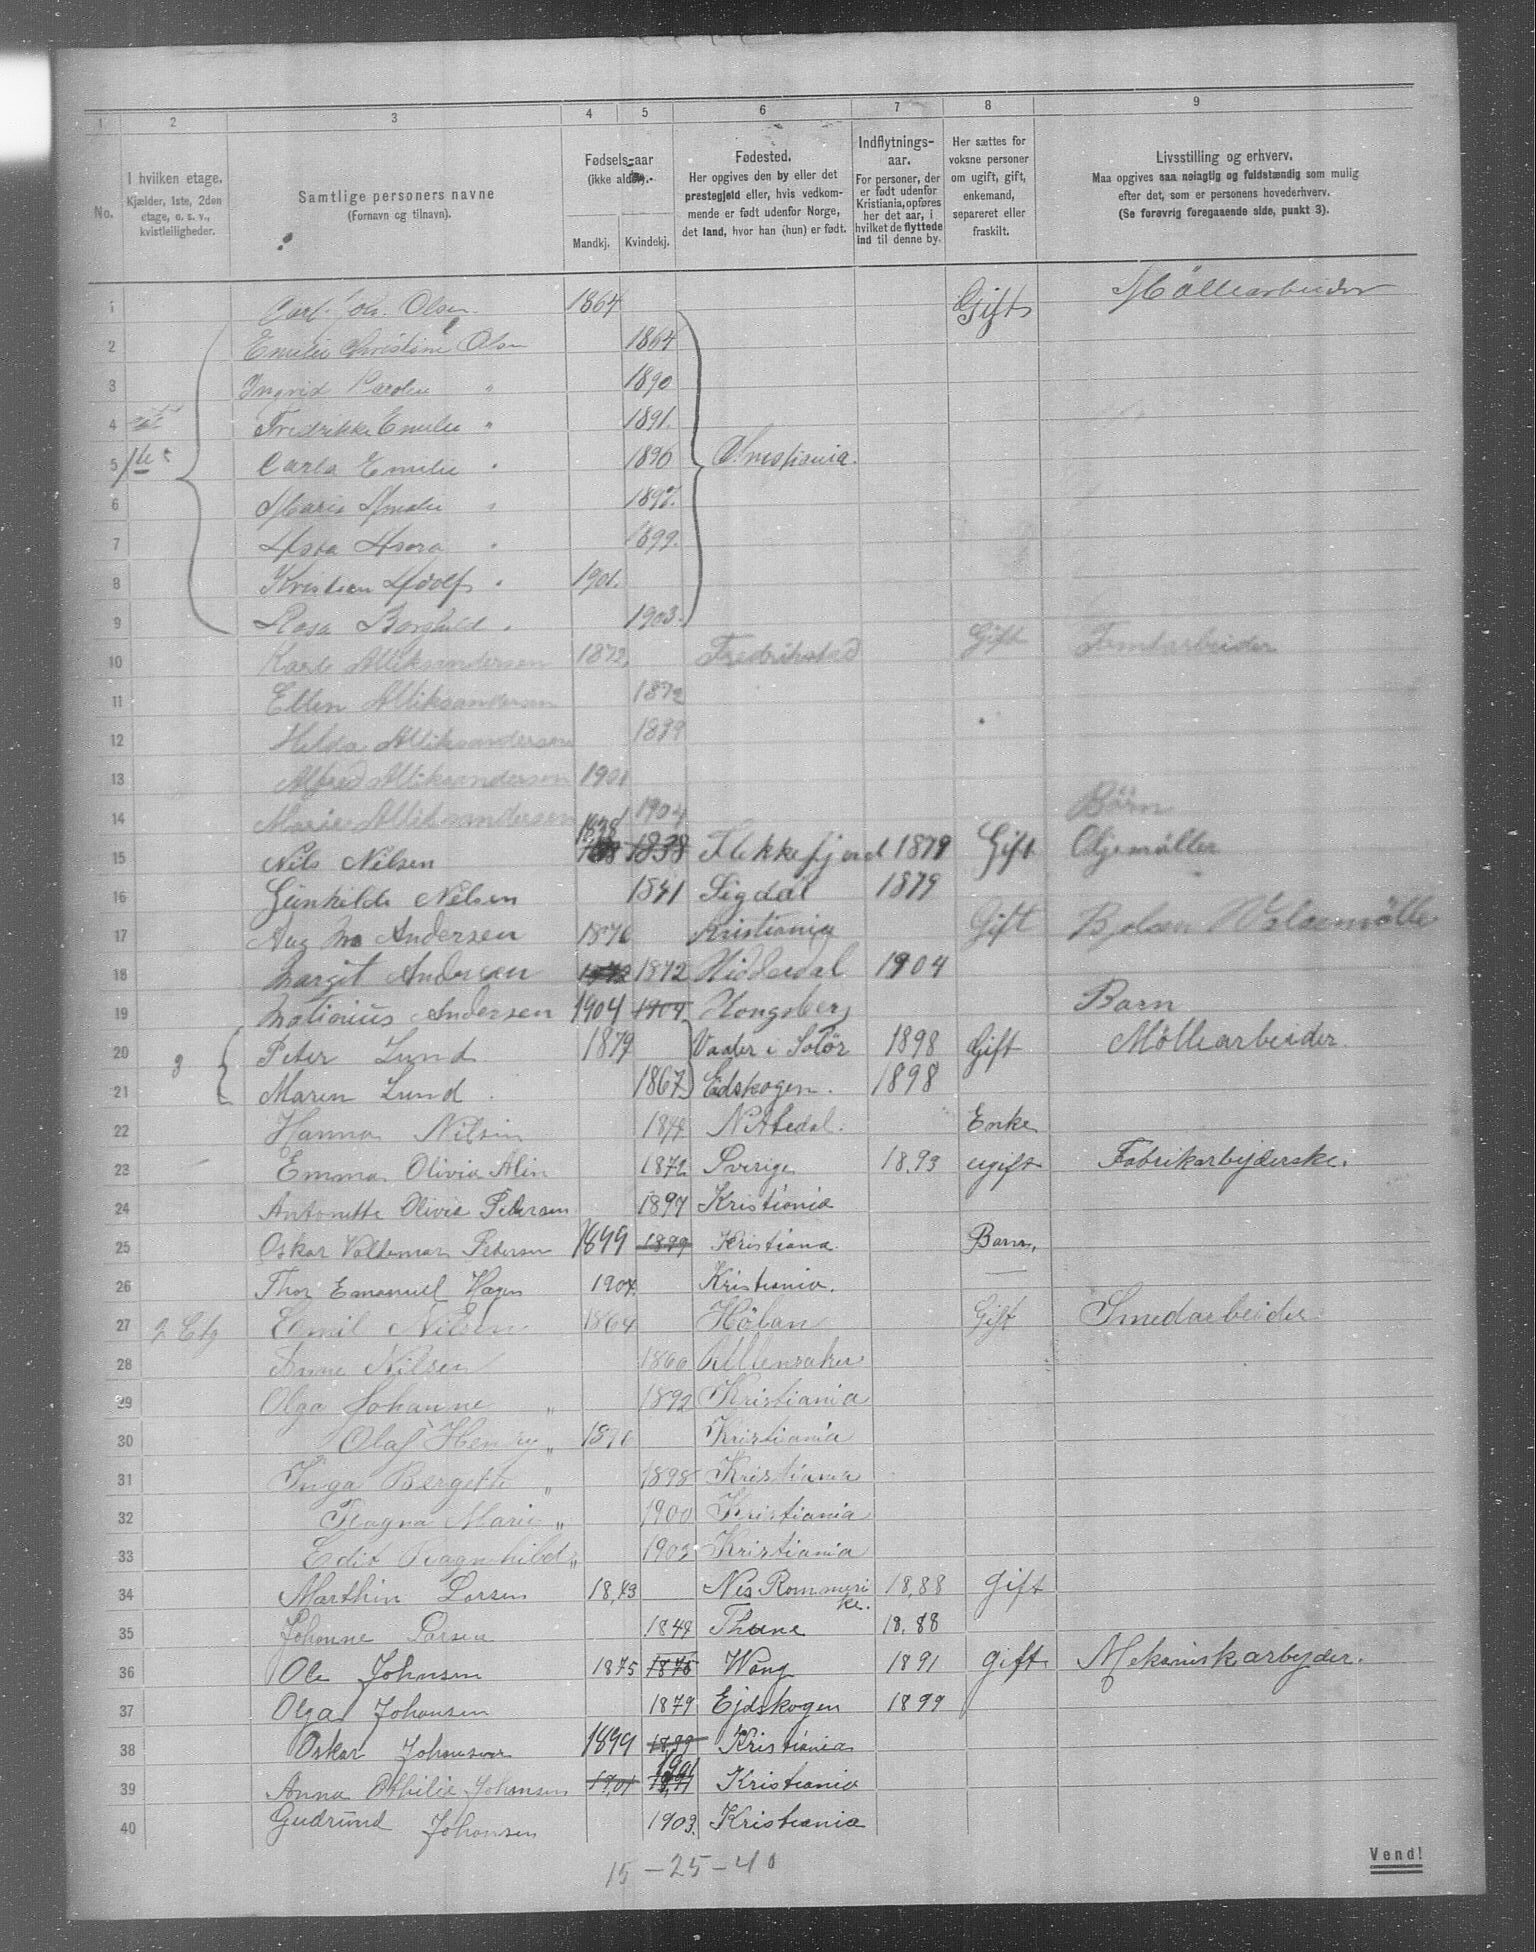 1 2 3 4 5 6 7 8 9
No.
I hvilken etage. Kjælder, 1ste, 2den etage, o. s. v., kvistleiligheder.
Samtlige personers navne (Fornavn og tilnavn).
Fødsels-aar (ikke alder). Mandkj. Kvindekj.
Fødested. Her opgives den by eller det prestegjeld eller, hvis vedkommende er født udenfor Norge, det land, hvor han (hun) er født.
Indflytnings-aar. For personer, der er født udenfor Kristiania, opføres her det aar, i hvilket de flyttede ind til denne by.
Her sættes for voksne personer om ugift, gift, enkemand, separeret eller fraskilt.
Livsstilling og erhverv. Maa opgives saa nøiagtig og fuldstændig som mulig efter det, som er personens hovederhverv. (Se forøvrig foregaaende side, punkt 3).
1 Carl Joh. Olsen 1864 Gift Möllearbeider
2 Emilie Christine Olsen 1864
3 Ingrid " 1890
4 Fredrikke Emilie " 1891.
5 1ste Carla Emilie " 1896 Christiania.
6 Marie Amalie " 1897.
7 Asta " 1899.
8 Kristian Adolf " 1901.
9 Rosa Borghild " 1903.
10 Karl Alliksandersen 1872, Fredrikstad Gift Tomtarbeider
11 Ellen Alliksandersen 1872
12 Hilda Alliksandersen 1899
13 Alfred Alliksandersen 1901
14 Marie Alliksandersen 1904 Börn
15 Nils Nilsen 1838 1838 Flekkefjord 1879 Gift Oljemöller
16 Gunhilde Nilsen 1841 Sigdal 1879
17 Aug Andersen 1876 Kristiania Gift Bjolsen Valsemölle
18 Margit Andersen 1872 1872 Hidderdal 1904
19 Matinius Andersen 1904 1904 Kongsberg Barn
20 Peter Lund 1879 Vaaler i Solör 1898 Gift Möllearbeider.
21 Maren Lund 1867 Eidskogen. 1898
22 Hanna Nilsen Nitedal. Enke
23 Emma Olivia Alin 1872 Sverige 1893 ugift Fabrikarbejderske.
24 Antonette Olivia Petersen 1897 Kristiania
25 Oskar Valdemar Petersen 1899 1899 Kristiana. Barn,
26 Thor Emanuel Hagen 1904. Kristiania.
27 2 Etg Emil Nilsen 1864 Höland Gift Smedarbeider
28 Anne Nilsen 1860 Ullensaker
29 Olga Johanne " 1892 Kristiania
30 Olaf Henry " 1896 Kristiania
31 Inga Bergethe " 1898 Kristiania
32 Ragna Marie " 1900 Kristiania
33 Edit Ragnhild " 1903 Kristiania
34 Marthin Larsen 18,43 Nes Rommerike. 18,88 gift
35 Johanne Larsen 1849 Thune 18.88
36 Ole Johnsen 1875 1875 Wang 1891 gift Mekaniskarbejder.
37 Olga Johansen 1879 Ejdskogen 1899
38 Oskar Johansen 1899 1899 Kristiania
39 Anna Othilie Johansen 1901 1901 Kristiania
40 Gudrund Johansen 1903. Kristiania
15 - 25 - 40
Vend!